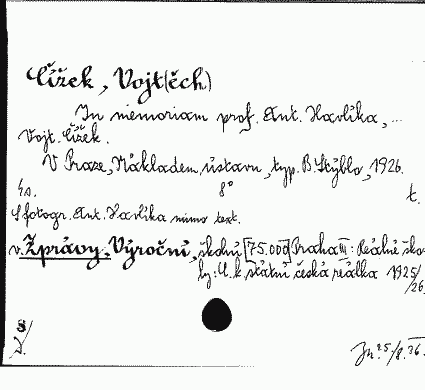 Čížek, Vojt(ěch)
In memoriam prof. Ant. Havlíka, ...
Vojt. Čížek.
V Praze, Nákladem ústavu, typ. B. Stýblo, 1926.
4 s. 8° t.
S fotogr. Ant. Havlíka mimo text.
v. Zprávy, Výroční, školní [75.000] Praha III: Reálné ško
ly: Č. k. státní česká reálka 1925/
26